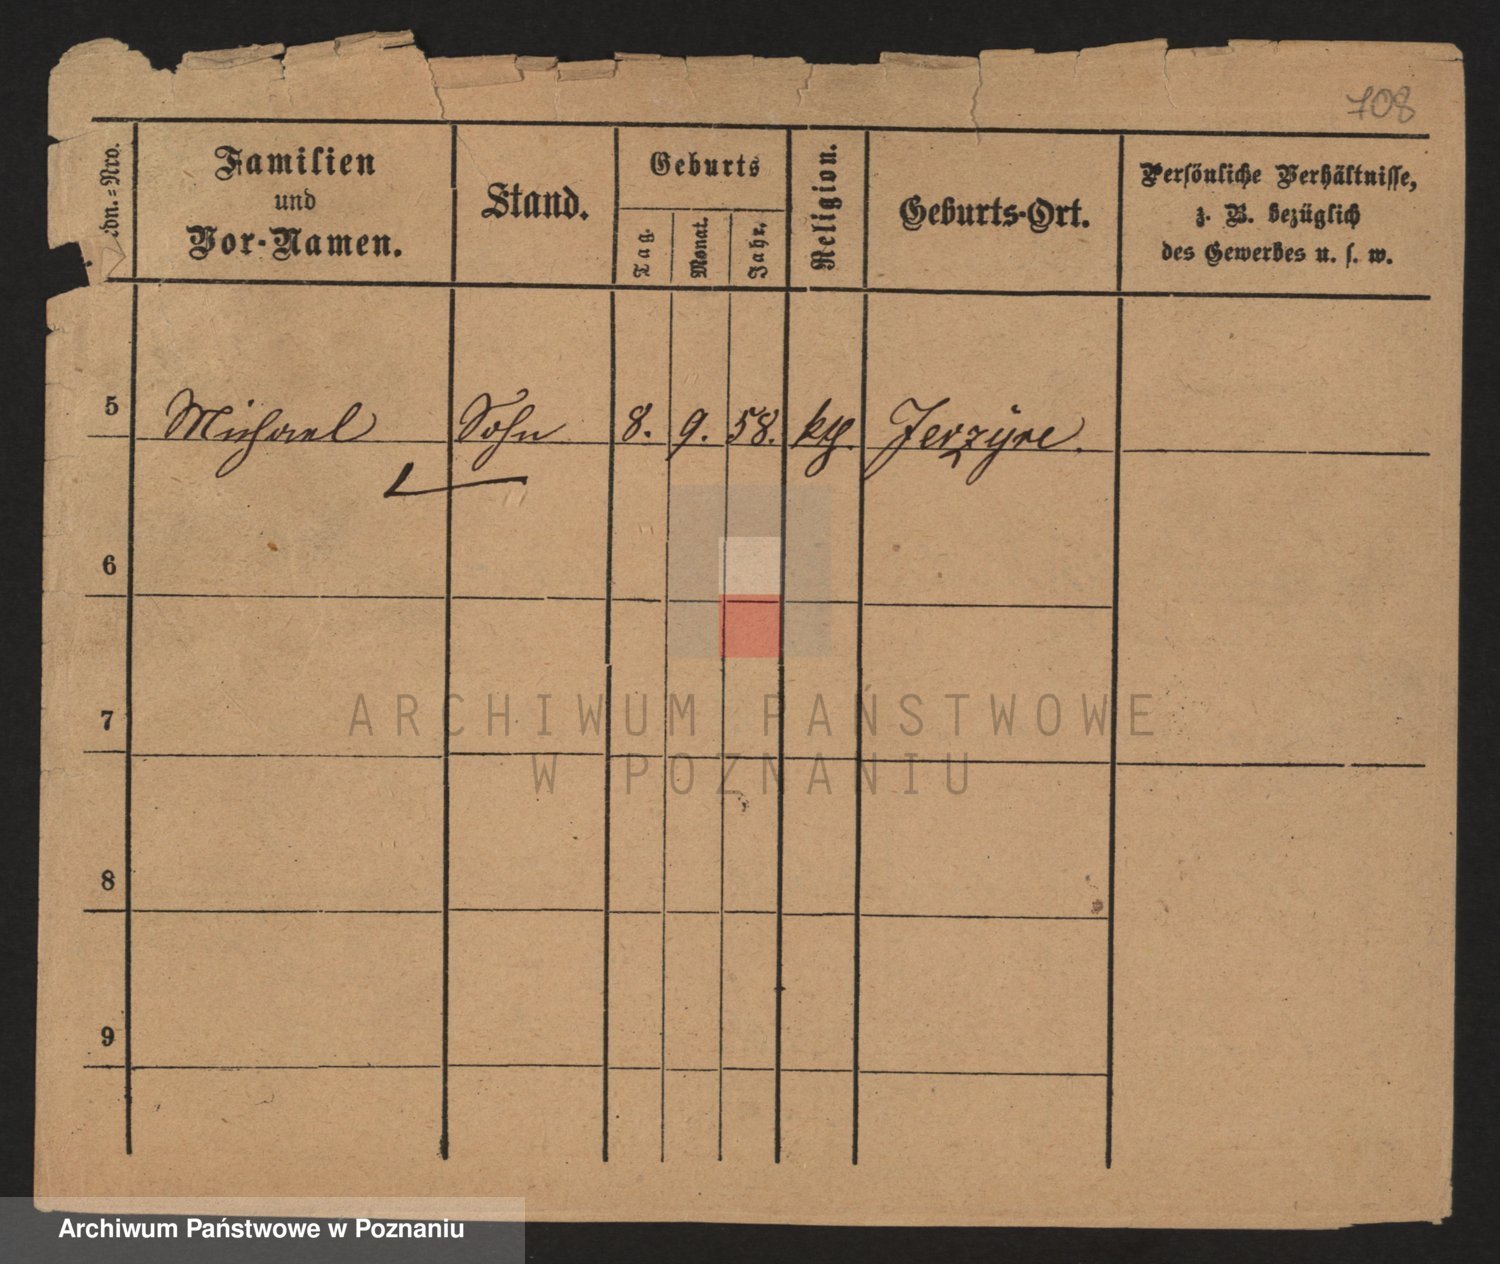 708
dn.=Nro.
Familien
und
Vor-Namen.
Stand.
Geburts
Tag.
Monat.
Jahr.
Religion.
Geburts-Ort.
Persönliche Verhältnisse,
z. B. bezüglich
des Gewerbes u. s. w.
5 Michael Sohn 8. 9. 58. kth. Jerzyce.
6
7
8
9
ARCHIWUM PAŃSTWOWE
W POZNANIU
Archiwum Państwowe w Poznaniu